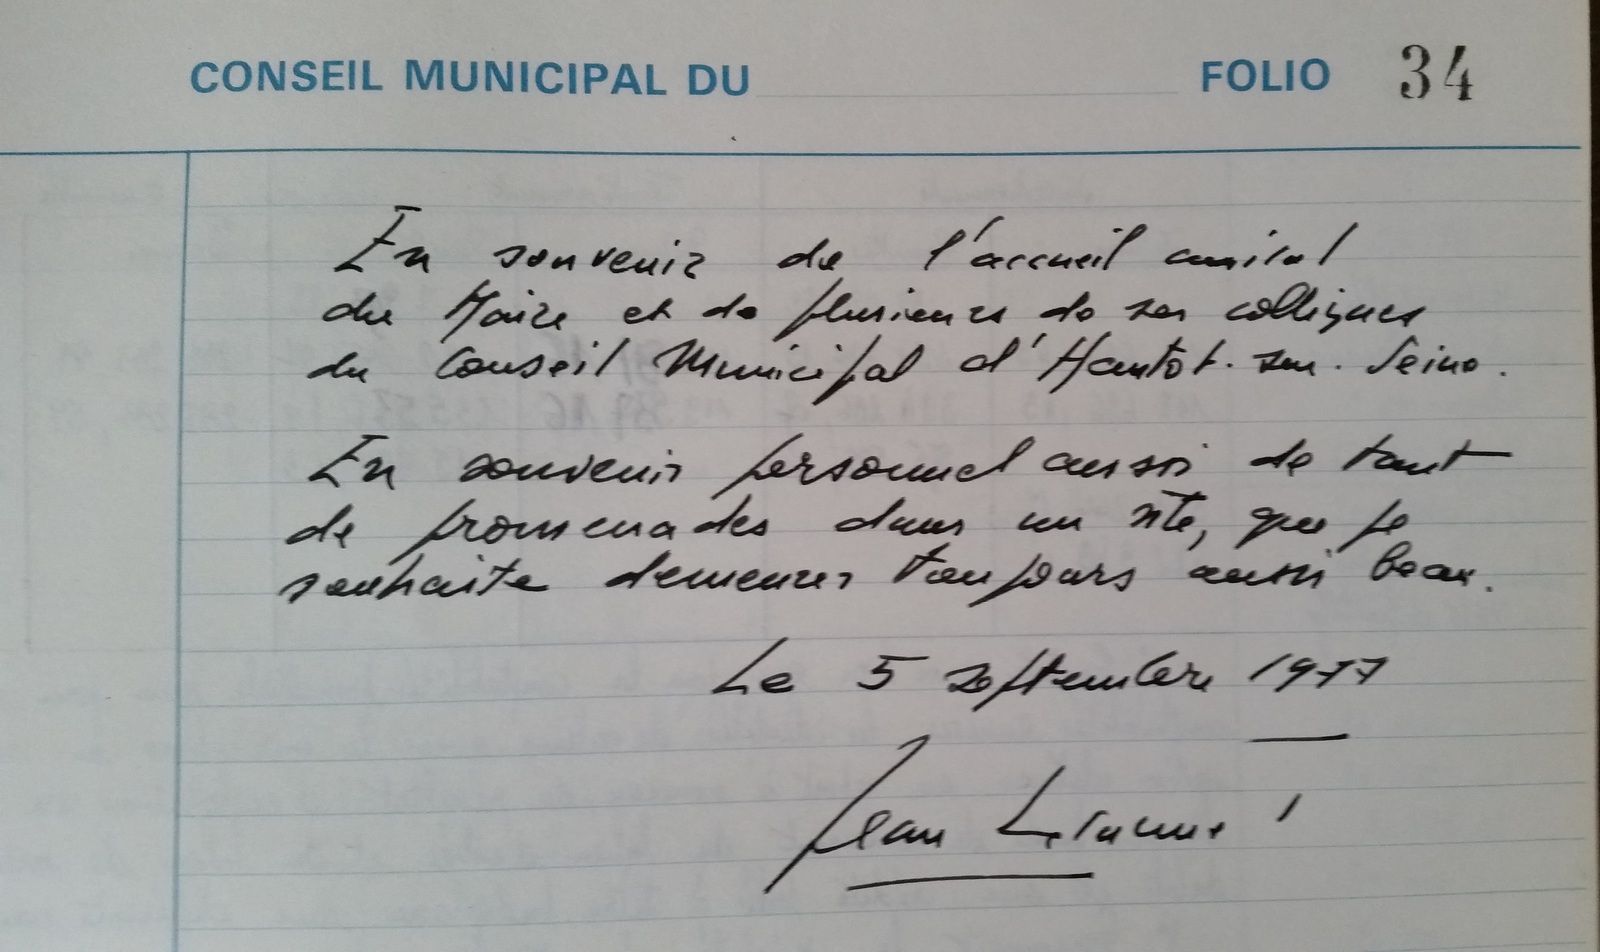 CONSEIL MUNICIPAL DU FOLIO 34
En souvenir de l'accueil amical
du Maire et de plusieurs de ses collègues
du Conseil Municipal d'Hautot-sur-Seine.
En souvenir personnel aussi de tant
de promenades dans un site, que je
souhaite demeurer toujours aussi beau.
Le 5 septembre 1977
Jean Lecanuet